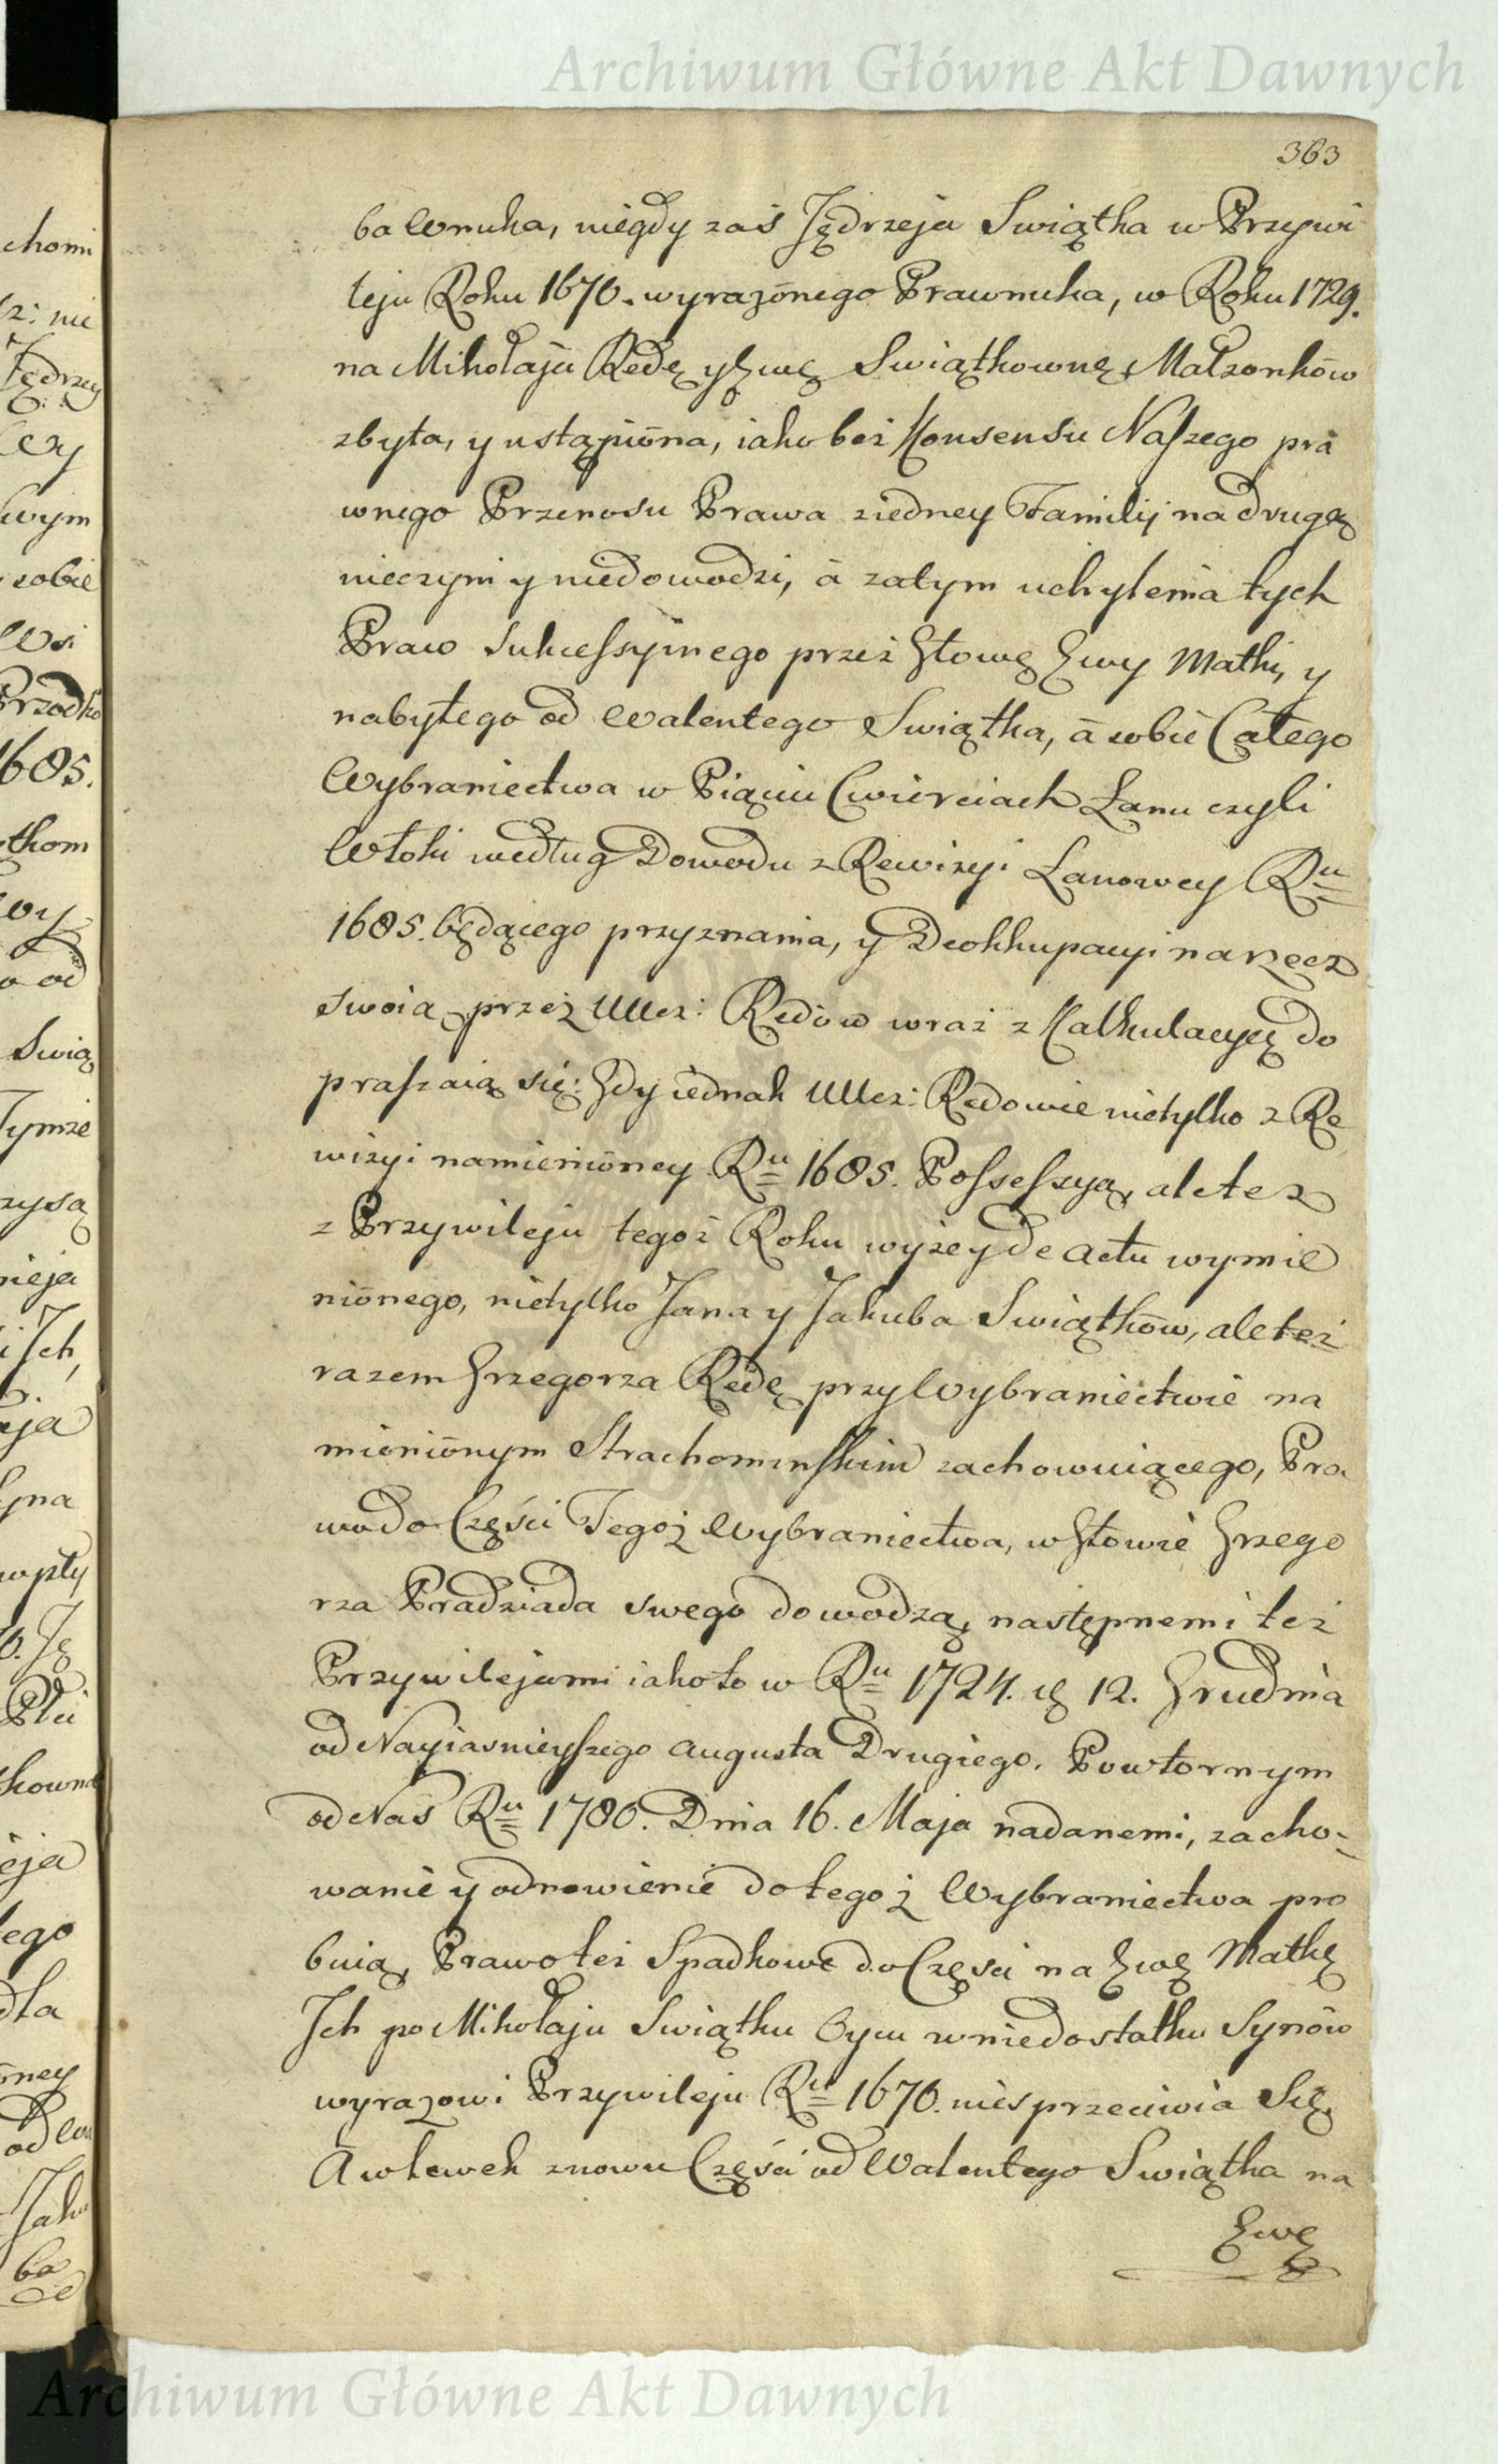 Archiwum Główne Akt Dawnych
363
ba Wnuka, niegdy zaś Jędrzeja Swiątka w Przywi
leju Roku 1670. wyrażōnego Prawnuka, w Roku 1729.
na Mikołaja Redę y Ewę Swiątkownę Małżonków
zbyta, y ustąpiōna, iako bez Konsensu Naszego pra
wnego Przenosu Prawa ziedney Familij na drugą
nieczyni y niedowodzi, á zatym uchylenia tych
Praw Sukcessyinego przez Głowę Ewy Matki, y
nabytego od Walentego Swiątka, á sobie Całego
Wybraniectwa w Piąciu Cwierciach Łanu czyli
Włoki według Dowodu z Rewizyi Łanowey Ru
1685. będącego przyznania, y Deokkupacyi na rzecz
swoią przez Ucz: Redów wraz z Kalkulacyą do
praszaią się: Gdy iednak Ucz: Redowie nietylko z Re
wizyi namieniōney Ru 1685. Possessyą, ale też
z Przywileju tegoż Roku wyżey de Actu wymie
niōnego, nietylko Jana y Jakuba Swiątków, ale też
razem Grzegorza Redę przy Wybraniectwie na
mieniōnym Strachominskim zachowuiącego, Pra
wa do Części Tegoż Wybraniectwa, w Głowie Grzego
rza Pradziada swego dowodzą, następnemi też
Przywilejami iako to w Ru 1724. 12. Grudnia
od Nayiasnieyszego Augusta Drugiego. Powtornym
od Nas Ru 1780. Dnia 16. Maja nadanemi, zacho-
wanie y odnowienie do tegoż Wybraniectwa pro
buią, Prawo też Spadkowe do Części na Ewę Matkę
Ich po Mikołaju Swiątku Oycu w niedostatku Synów
wyrazowi Przywileju Ru 1670. niesprzeciwia Się,
A wlewek znowu Części od Walentego Swiątka na
Ewę
chomi
nie
Jędrzey
wym
sobie
Wsi
Przodko
1685.
tkom
od
Swią
Tymże
nieja
Ich
eja
yna
wpły
kowna
eja
ego
dla
ōney
Jaku
ba
Archiwum Główne Akt Dawnych